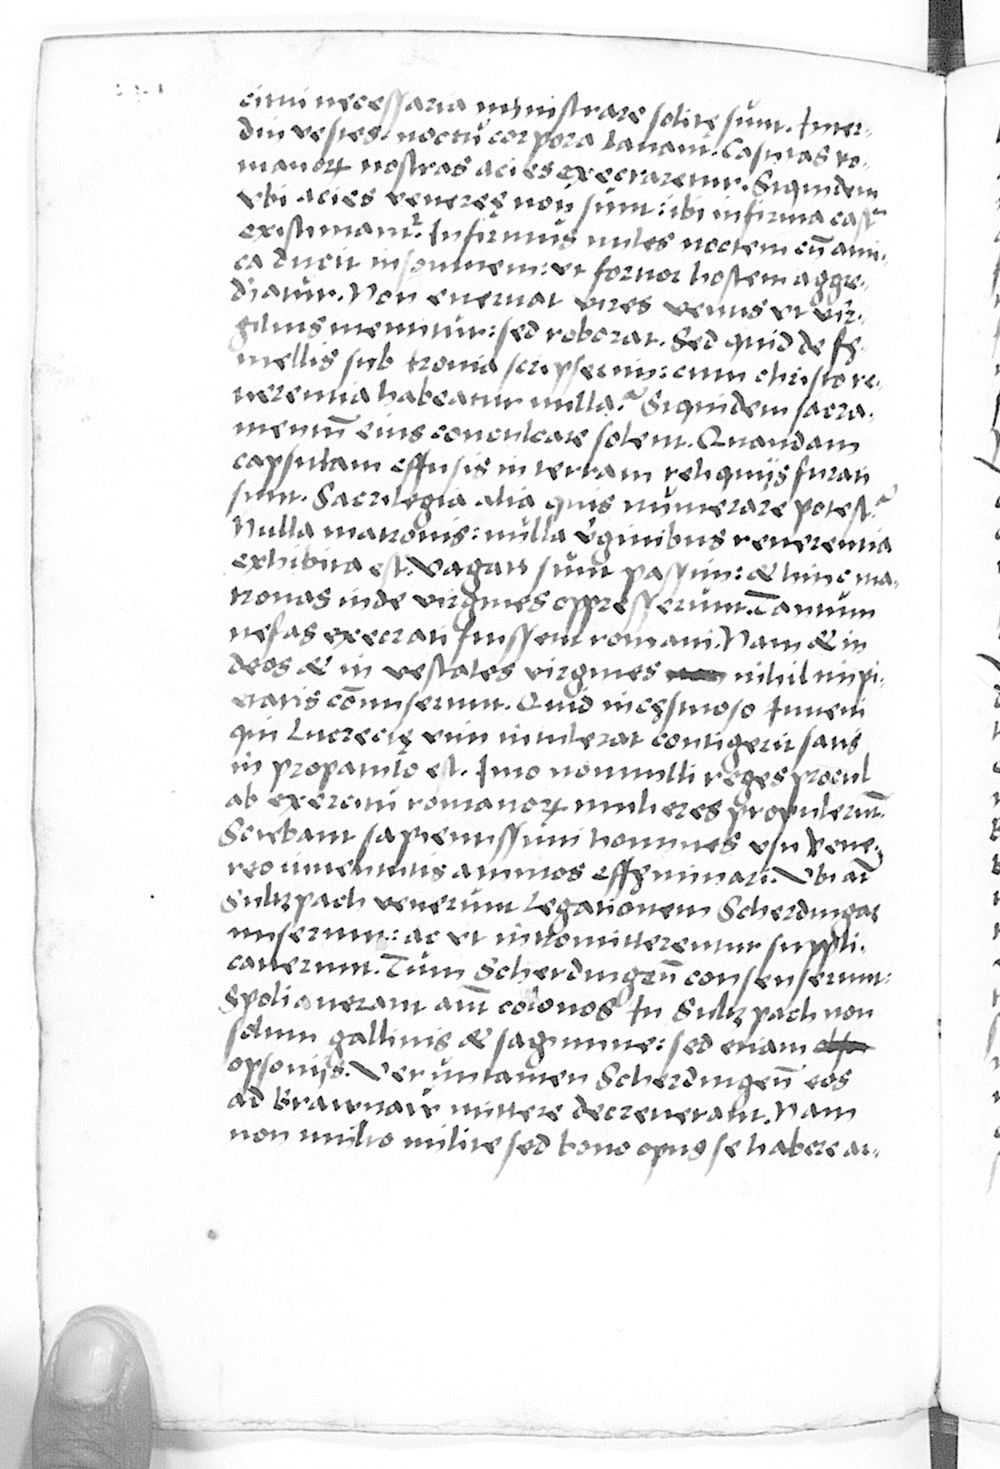 cimi necessaria ministrare solitę sunt. Inter-
diu vestes: noctu corpora lauant. Castitas ro-
manorꝝ nostras acies execraretur. Siquidem
vbi acies venereę non sunt: ibi infirma castr̃
existimant.² Infirmus miles noctem cũ ami-
ca ducit insomnem: vt fortior hostem aggre-
diatur. Non eneruat vires venus vt vir-
gilius mentitur: sed roborat. Sed quid de fę-
mellis sub Ironia scripserim: cum christo re-
uerentia habeatur nulla? Siquidem sacra-
mentũ eius conculcare solent. Quandam
capsulam effusis in terram reliquijs furati
sunt. Sacrilegia alia quis numerare potest?
Nulla matronis: nulla v̉ginibus reuerentia
exhibita est. Vagati sunt passim: & hinc ma-
tronas inde virgines oppresserunt. Tantum
nefas execrati fuissent romani. Nam & in
deos & in vestales virgines nihil impi-
etatis cõmiserunt. Quid incęstuoso Iuueni
qui Lucrecię vim intulerat contigerit satis
in propatulo est. Imo nonnulli reges procul
ab exercitu romanorꝝ mulieres propulerũt.
Sciebant sapientissimi homines vsu Vene-
reo iuuentutis animos effęminari. Vbi aũt
Sultzpach venerunt Legationem Scherdingas
miserunt: ac vt intromitterentur suppli-
cauerunt. Tum Scherdingeñ consenserunt:
Spoliauerant aũt colonos In Sultzpach non
solum gallinis & sagimine: sed etiam
opsonijs. Veruntamen Scherdingeñ eos
ad Brawnaw mittere decreuerant. Nam
non multo milite sed bono opus se habere ar-